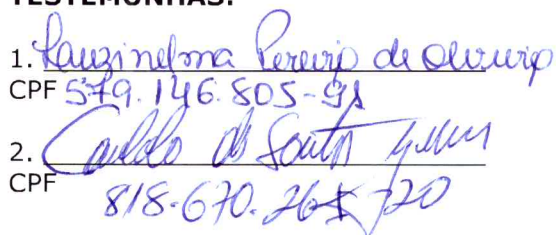 TESTEMUNHAS:
1. Lauzinelma Pereira de Oliveira
CPF 579.146.805-91
2. dos Santos
CPF
818.670.265-20